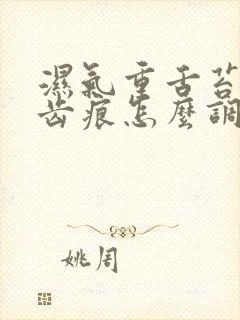 濕氣重舌苔
齒痕怎麼調
姚周